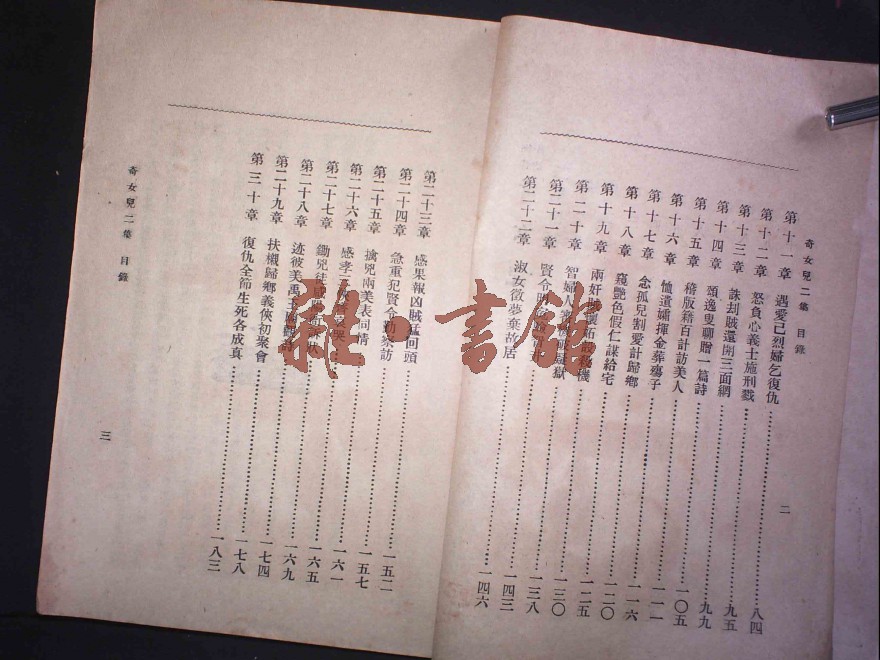 奇女兒二集 目錄
二
第十一章 遇愛己烈婦乞復仇……八四
第十二章 怒負心義士施刑戮……九五
第十三章 誅刦賊還開三面網……九九
第十四章 逸叟聊贈一篇詩……一〇五
第十五章 稽版籍百計訪美人……一一一
第十六章 恤遺孀揮金葬殤子……一一六
第十七章 念孤兒割愛計歸鄉……一二〇
第十八章 窺艷色假仁謀給宅……一二五
第十九章 兩奸賊機……一三〇
第二十章 智婦人獄……一三八
第二十一章 賢令……一四三
第二十二章 淑女徵夢棄故居……一四六
第二十三章 感果報凶賊猛回頭……一五二
第二十四章 急重犯賢令勤察訪……一五七
第二十五章 擒兇兩美表同情……一六一
第二十六章 感孝三俠哭……一六五
第二十七章 鋤兇徒……一六九
第二十八章 迹彼美禹王詩……一七四
第二十九章 扶櫬歸鄉義俠初聚會……一七八
第三十章 復仇全節生死各成真……一八三
奇女兒二集 目錄
三
雅·書館